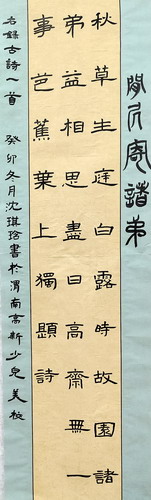 閒居寄諸弟
秋草生庭白露時故園諸
弟益相思盡日高齋無一
事芭蕉葉上獨題詩
右錄古詩一首 癸卯冬月沈琪玲書於渭南高新少兒美校